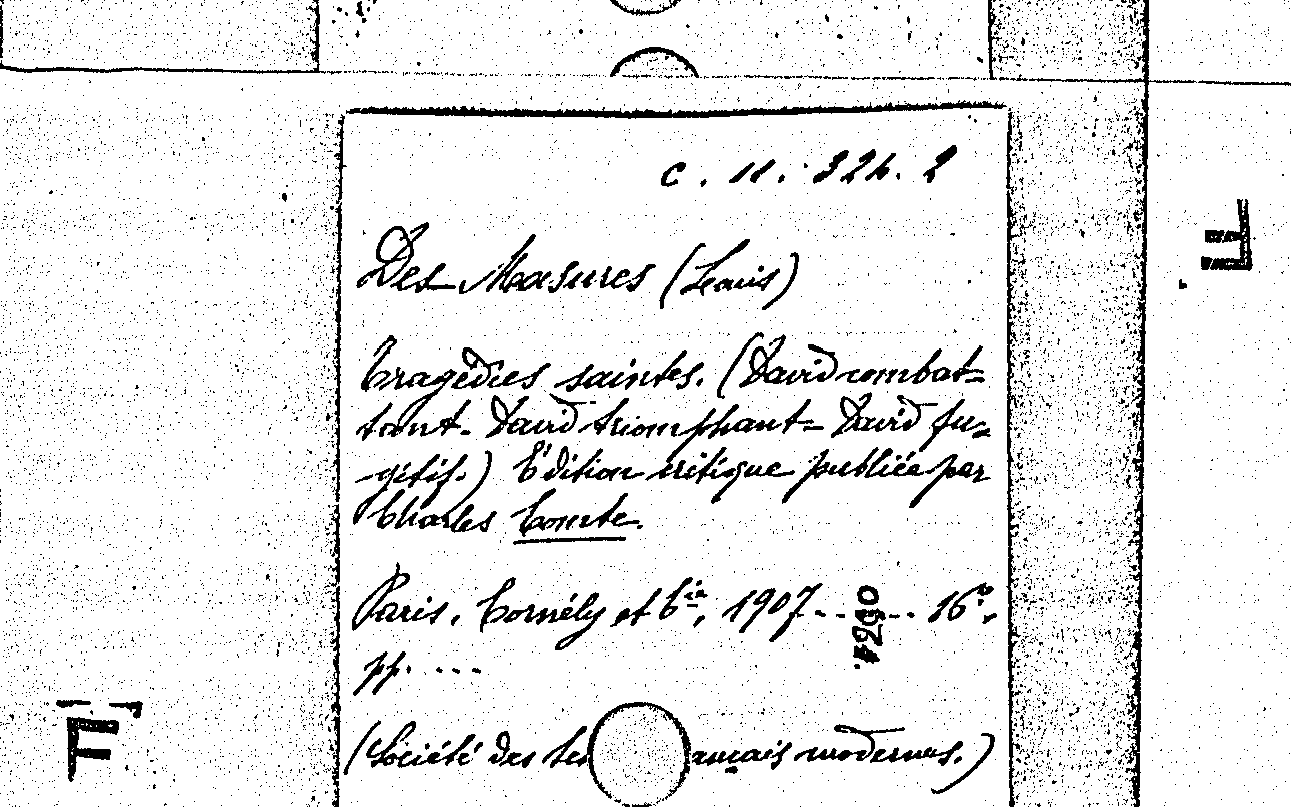 C. 11. 324. 2
Des Masures (Louis)
Tragédies saintes. (David combat=
tant - David triomphant = David fu=
gitif.) Édition critique publiée par
Charles Comte.
Paris, Cornély et Cie, 1907 - - - - 16º.
pp. - - -
(Société des français modernes.)
F
F